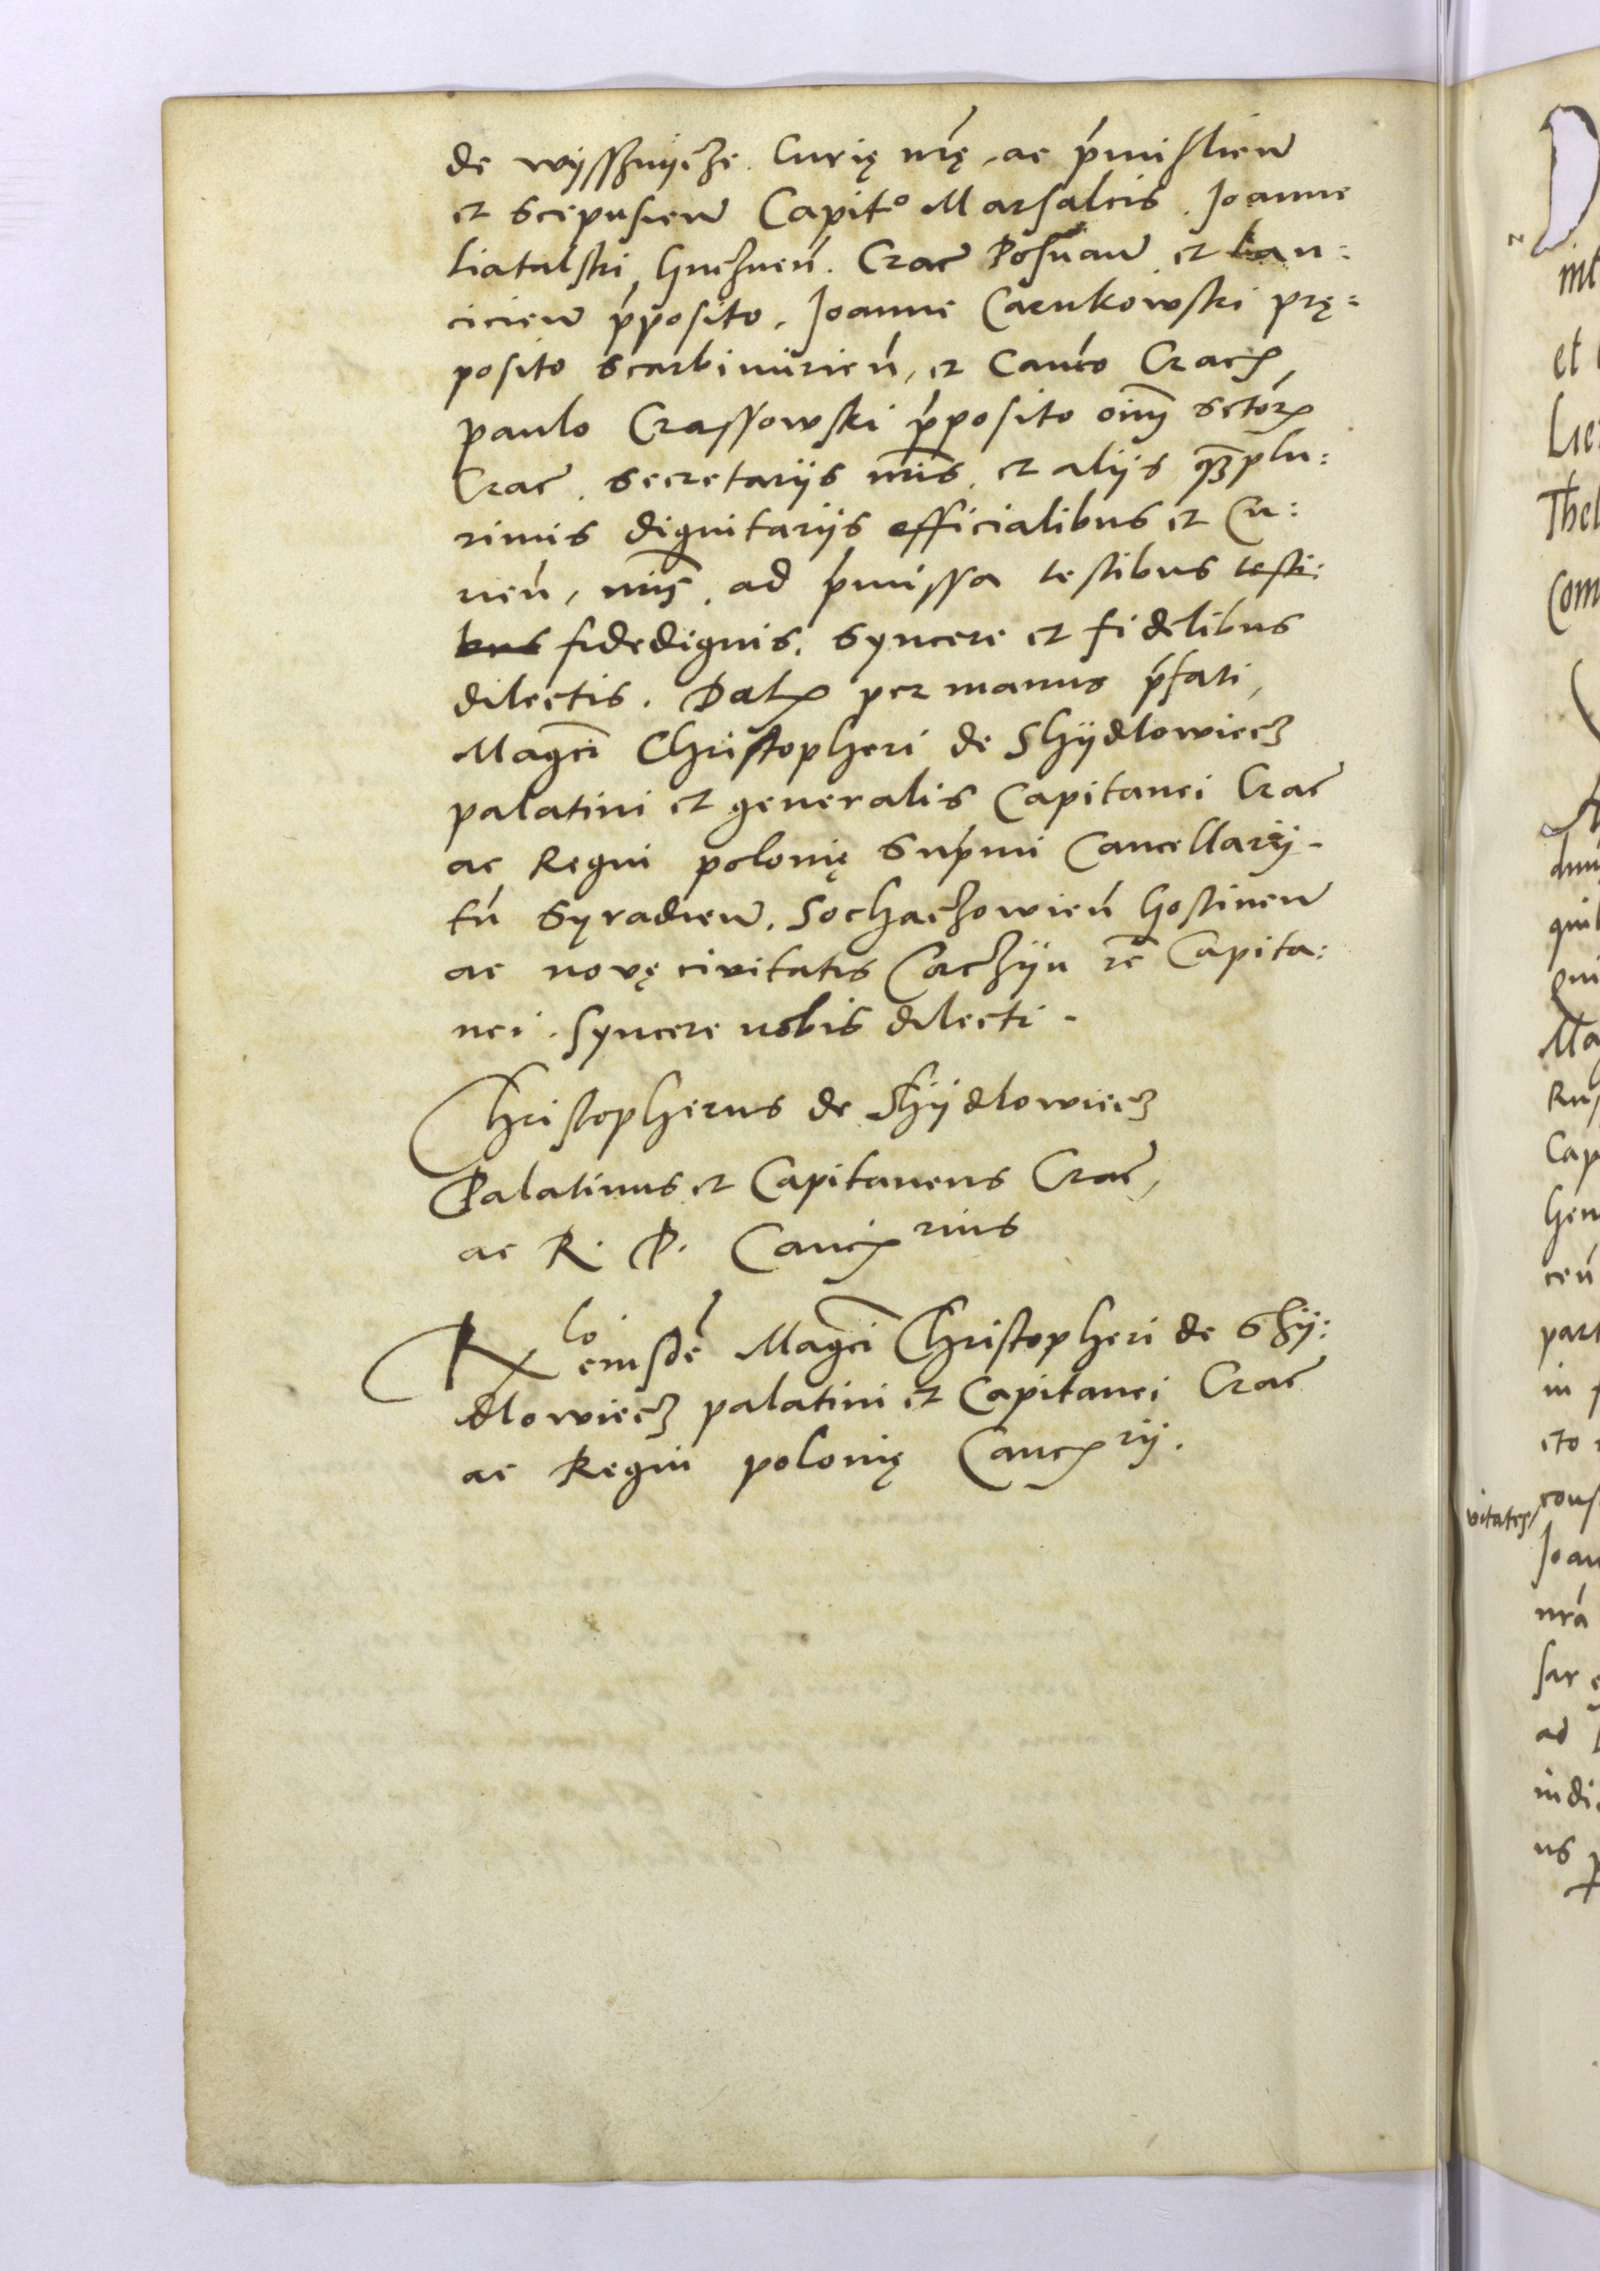 de wÿsshnÿcze. Curię nrę, ac pʹmislien̄
et Scepusien̄ Capit° Marsalcis. Joanne
Liatalski, Gneznen̄. Crac̄ Posnan̄ et Lan:
cicien̄ pʹposito, Joanne Carnkowski prę=
posito Scarbimirien̄, et Canco Cracꝭ
paulo Crassowski pʹposito oīm Sctorꝝ
Crac̄. Secretariis nr̄is. et aliis q̄ꝫplu:
rimis dignitarijs officialibus et Cu:
rien̄, nr̄is. ad pʹmissa testibus testi:
bus fidedignis. Syncere et fidelibus
dilectis. Datꝭ per manus pʹfati,
Magci Christopheri de Shÿdlowiecz
palatini et generalis Capitanei Crac̄
ac Regni polonię Supʹmi Cancellarij -
tn̄ Syradien̄. Sochaczowien̄ Gostinen̄
ac novę civitatis Corczÿn rc̄ Capita:
nei. Syncere nobis dilecti -
Christopherus de Shÿdlowiecz
Palatinus et Capitaneus Crac̄,
ac R. P. Cancꝭrius
Rlo eiusdē Magci Christopheri de Shÿ:
dlowiecz palatini et Capitanei Crac̄
ac Regni polonię Cancꝭrij.
int
et
Lie
Thel
Com
quil
Ma
Rus
Cap
hen
cen̄
part
in
eto
vitates/ cons
Joan
nrā
sar
ad
indi
us